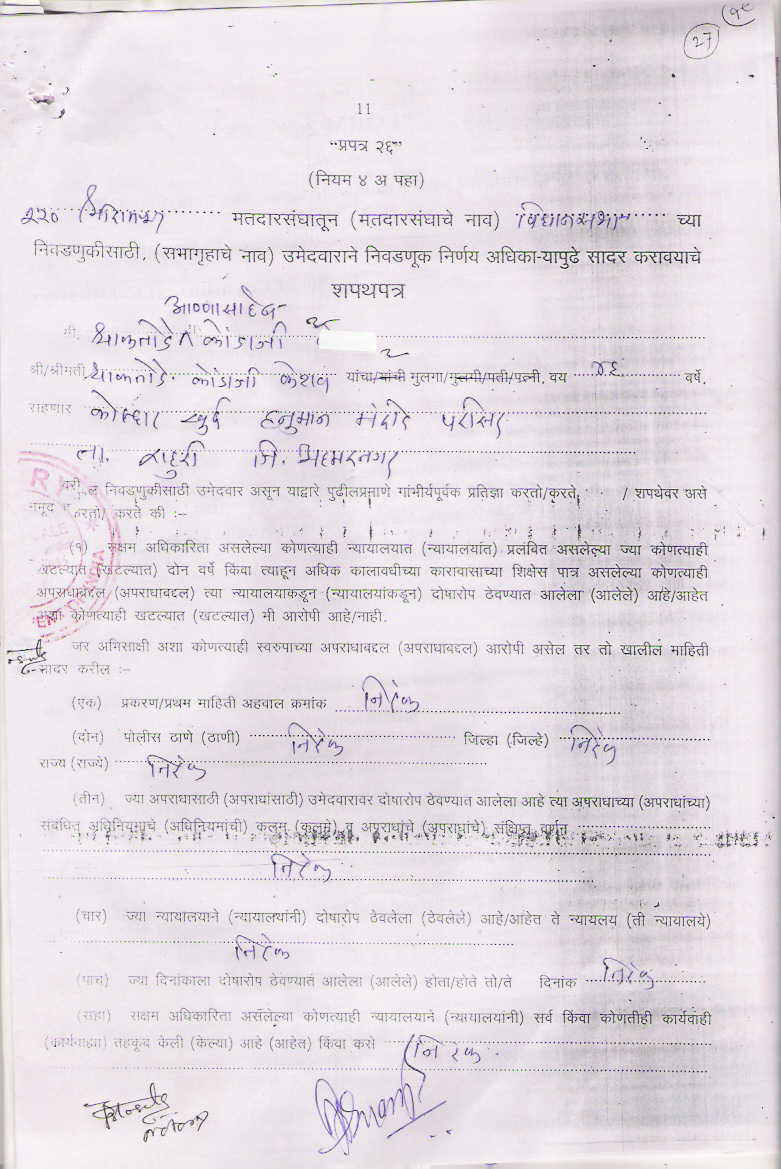 27
11
“प्रपत्र २६”
(नियम ४ अ पहा)
२२० मतदारसंघातून (मतदारसंघाचे नाव) विधानसभा च्या
निवडणुकीसाठी, (सभागृहाचे नाव) उमेदवाराने निवडणूक निर्णय अधिका-यापुढे सादर करावयाचे
शपथपत्र
आण्णासाहेब
मी, कोंडाजी
श्री/श्रीमती कोंडाजी केशव यांचा/यांची मुलगा/मुलगी/पती/पत्नी, वय ४६ वर्षे,
राहणार कोल्हार खुर्द हनुमान मंदीर परिसर
ता. राहुरी जि. अहमदनगर
वरील निवडणुकीसाठी उमेदवार असून याद्वारे पुढीलप्रमाणे गांभीर्यपूर्वक प्रतिज्ञा करतो/करते, / शपथेवर असे
नमूद करतो/ करते की :–
(१) सक्षम अधिकारिता असलेल्या कोणत्याही न्यायालयात (न्यायालयांत) प्रलंबित असलेल्या ज्या कोणत्याही
खटल्यात (खटल्यात) दोन वर्षे किंवा त्याहून अधिक कालावधीच्या कारावासाच्या शिक्षेस पात्र असलेल्या कोणत्याही
अपराधाबद्दल (अपराधाबद्दल) त्या न्यायालयाकडून (न्यायालयांकडून) दोषारोप ठेवण्यात आलेला (आलेले) आहे/आहेत
अशा कोणत्याही खटल्यात (खटल्यात) मी आरोपी आहे/नाही.
जर अभिसाक्षी अशा कोणत्याही स्वरुपाच्या अपराधाबद्दल (अपराधाबद्दल) आरोपी असेल तर तो खालील माहिती
सादर करील :–
(एक) प्रकरण/प्रथम माहिती अहवाल क्रमांक निरंक
(दोन) पोलीस ठाणे (ठाणी) निरंक जिल्हा (जिल्हे) निरंक
राज्य (राज्ये) निरंक
(तीन) ज्या अपराधासाठी (अपराधांसाठी) उमेदवारावर दोषारोप ठेवण्यात आलेला आहे त्या अपराधाच्या (अपराधांच्या)
संबंधित अधिनियमाचे (अधिनियमांची) कलम (कलमे) व अपराधांचे (अपराधांचे) संक्षिप्त वर्णन
निरंक
(चार) ज्या न्यायालयाने (न्यायालयांनी) दोषारोप ठेवलेला (ठेवलेले) आहे/आहेत ते न्यायलय (ती न्यायालये)
निरंक
(पाच) ज्या दिनांकाला दोषारोप ठेवण्यात आलेला (आलेले) होता/होते तो/ते दिनांक निरंक
(सहा) सक्षम अधिकारिता असलेल्या कोणत्याही न्यायालयाने (न्यायालयांनी) सर्व किंवा कोणतीही कार्यवाही
(कार्यवाह्या) तहकूब केली (केल्या) आहे (आहेत) किंवा कसे निरंक.